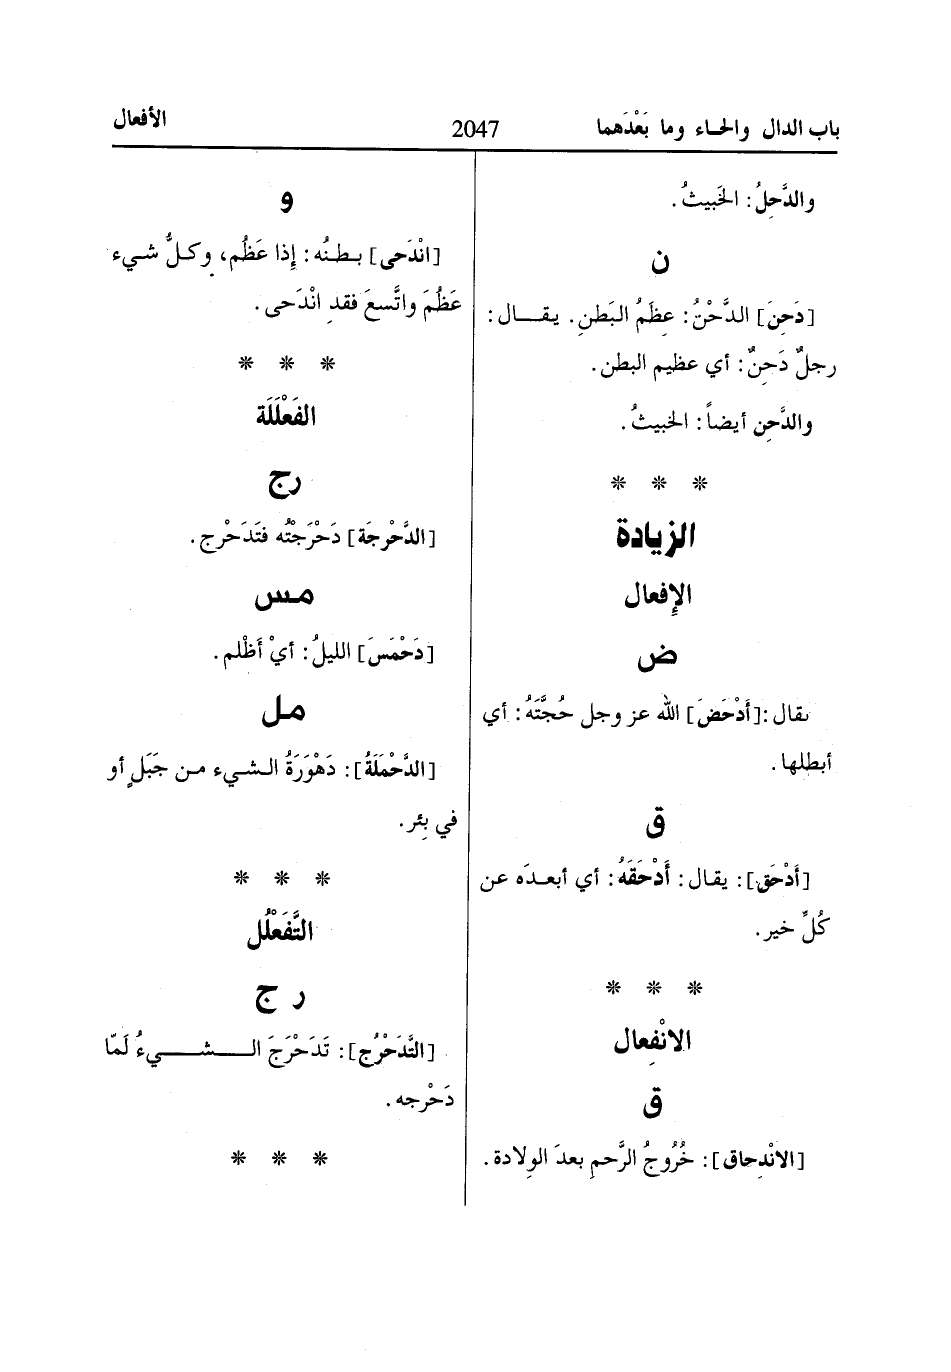 باب الدال والحاء وما بَعْدَهما
2047
الأفعال
والدَّحِلُ: الخَبيثُ.
ن
[دَحِنَ] الدَّحْنُ: عِظَمُ البَطنِ. يقال:
رجلٌ دَحِنٌ: أي عظيم البطن.
والدَّحِن أيضاً: الخبيثُ.
* * *
الزيادة
الإفعال
ض
يقال: [أَدْحَضَ] الله عز وجل حُجَّتَهُ: أي
أبطلها.
ق
[أَدْحَق]: يقال: أَدْحَقَهُ: أي أبعدَه عن
كُلِّ خير.
* * *
الانْفِعال
ق
[الانْدِحاق]: خُرُوجُ الرَّحمِ بعدَ الوِلادة.
و
[انْدَحى] بطنُه: إِذا عَظُم، وكلُّ شيء
عَظُمَ واتَّسعَ فقدِ انْدَحى.
* * *
الفَعْلَلَة
رج
[الدَّحْرجَة] دَحْرَجْتُه فتَدَحْرج.
مس
[دَحْمَسَ] الليلُ: أيْ أَظْلم.
مل
[الدَّحْمَلَةُ]: دَهْوَرَةُ الشيء من جَبَلٍ أو
في بِئر.
* * *
التَّفَعْلُل
ر ج
[التَّدَحْرُج]: تَدَحْرَجَ الشيءُ لَمّا
دَحْرجه.
* * *